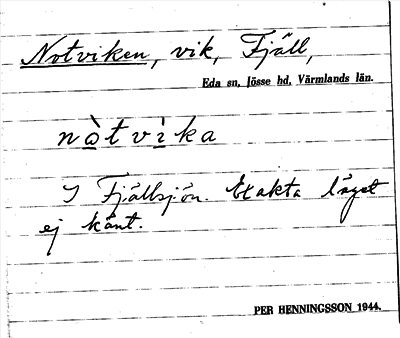 Notviken, vik, Fjäll,
Eda sn, Jösse hd, Värmlands län.
nò̱tvì̱ka
I Fjällsjön. Exakta läget
ej känt.
PER HENNINGSSON 1944.